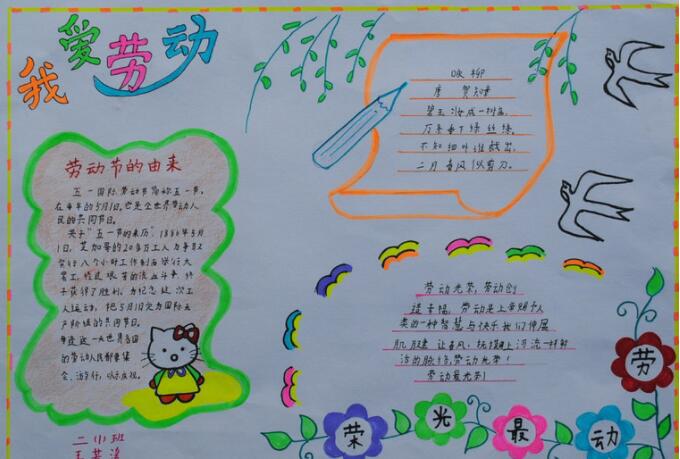 我爱劳动
劳动节的由来
五一国际劳动节简称五一节，
在每年的5月1日。它是全世界劳动人
民的共同节日。
关于“五一节的来历”1886年5月
1日，芝加哥的20多万工人为争取
实行八个小时工作制而举行大
罢工，经过艰苦的流血斗争，终
于获得了胜利。为纪念这次工
人运动，把5月1日定为国际无
产阶级的共同节日。
每逢这一天世界各国
的劳动人民都要集
会、游行，以示庆祝。
二小班
咏柳
唐 贺知章
碧玉妆成一树高，
万条垂下绿丝绦。
不知细叶谁裁出，
二月春风似剪刀。
劳动光荣，劳动创
造幸福，劳动是上帝赐予人
类的一种智慧与快乐我们伸展
肌腱 让春风
劳动光荣！
劳动最光荣！
劳
动
最
光
荣